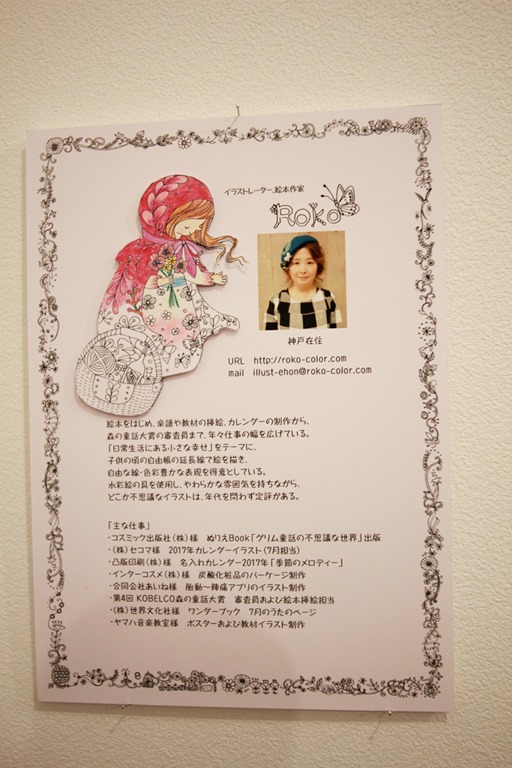 イラストレーター、絵本作家
Roko
神戸在住
URL http://roko-color.com
mail illust-ehon@roko-color.com
絵本をはじめ、楽譜や教材の挿絵、カレンダーの制作から、
森の童話大賞の審査員まで、年々仕事の幅を広げている。
「日常生活にある小さな幸せ」をテーマに、
子供の頃の自由帳の延長線で絵を描き、
自由な線・色彩豊かな表現を得意としている。
水彩絵の具を使用し、やわらかな雰囲気を持ちながら、
どこか不思議なイラストは、年代を問わず定評がある。
「主な仕事」
・コスミック出版社(株)様 ぬりえBook「グリム童話の不思議な世界」出版
・(株)セコマ様 2017年カレンダーイラスト(7月担当)
・凸版印刷(株)様 名入れカレンダー2017年「季節のメロディー」
・インターコスメ(株)様 炭酸化粧品のパーケージ制作
・合同会社あいね様 胎動〜陣痛アプリのイラスト制作
・第4回 KOBELCO森の童話大賞 審査員および絵本挿絵担当
・(株)世界文化社様 ワンダーブック 7月のうたのページ
・ヤマハ音楽教室様 ポスターおよび教材イラスト制作